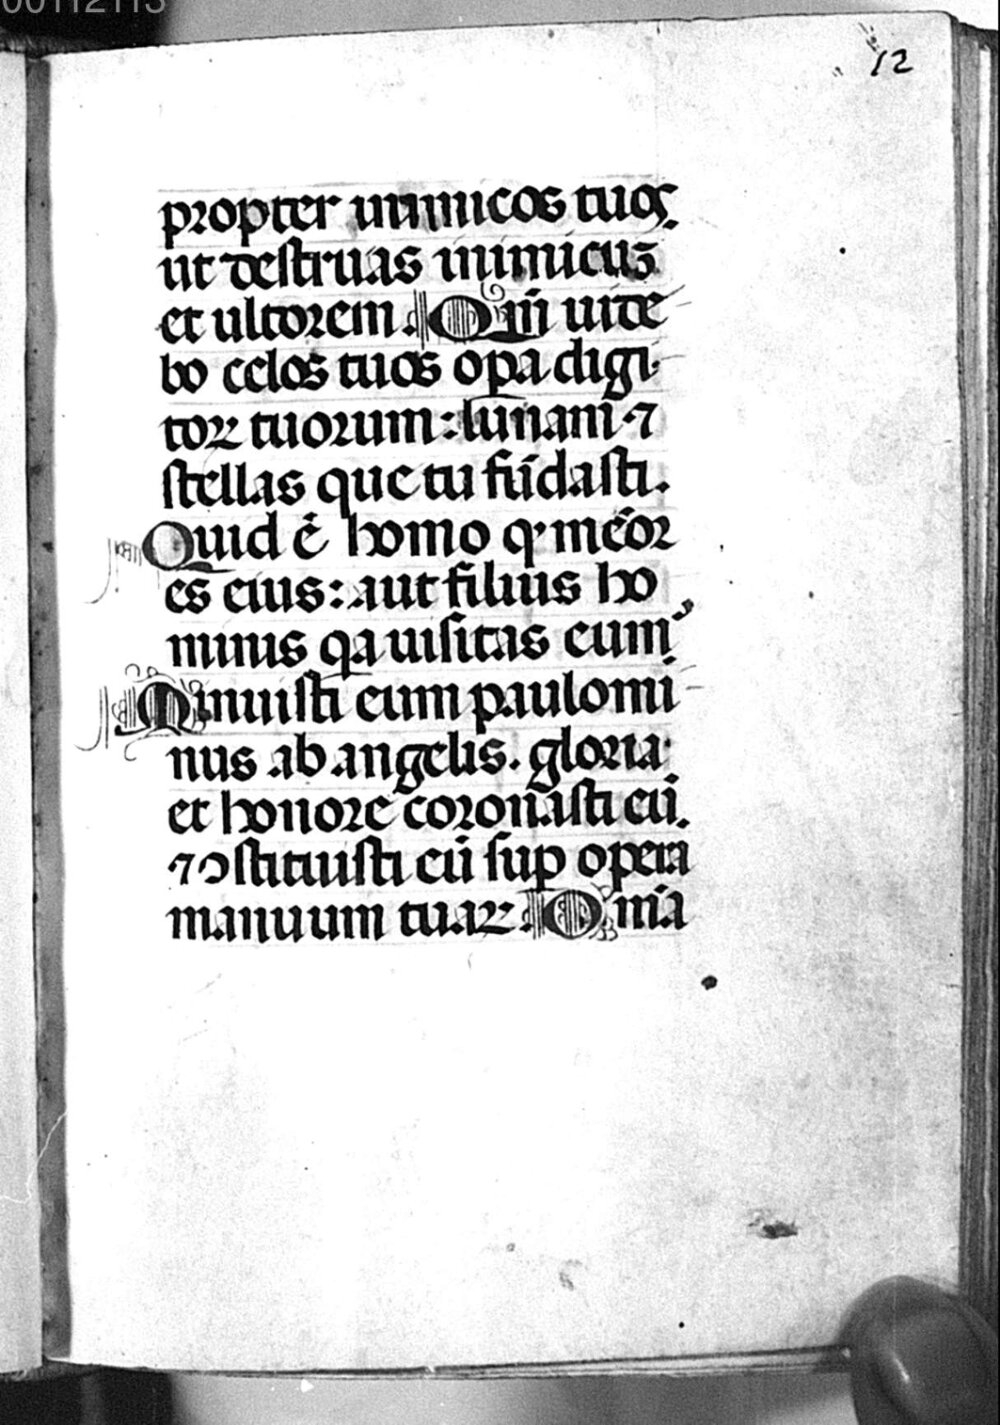 00112113
12
propter inimicos tuos.
ut destruas inimicuʒ
et ultorem. Qm̄ uide
bo celos tuos opa digi
toꝝ tuorum: lunam ⁊
stellas que tu fūdasti.
Quid ē homo ꝙ mēor
es eius: aut filius ho
minis qa uisitas eum.
Minuisti eum paulomi
nus ab angelis. gloria
et honore coronasti eū.
⁊ ↄstituisti eū sup opera
manuum tuaꝝ. Om̄ia